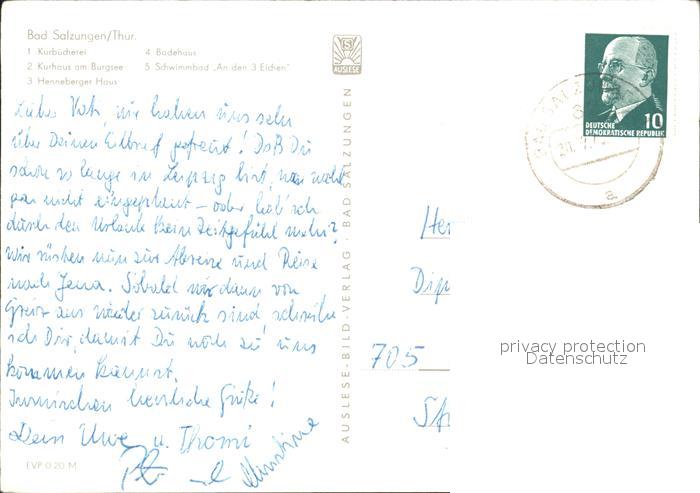 Bad Salzungen/Thür.
1 Kurbücherei
2 Kurhaus am Burgsee
3 Henneberger Haus
4 Badehaus
5 Schwimmbad „An den 3 Eichen"
AUSLESE
AUSLESE-BILD-VERLAG · BAD SALZUNGEN
DEUTSCHE
DEMOKRATISCHE REPUBLIK
10
a
Lieber Vati, wir haben uns sehr
über Deinen Eilbrief gefreut! Daß Du
schon so lange in Leipzig bist, war wohl
gar nicht eingeplant – oder hab' ich
durch den Urlaub kein Zeitgefühl mehr?
Wir rüsten nun zur Abreise und Reise
nach Jena. Sobald wir dann von
Greiz aus wieder zurück sind schreibe
ich Dir, damit Du noch zu uns
kommen kannst.
Inzwischen herzliche Grüße!
Dein Uwe u. Thomi
EVP 0.20 M
Her
Dip
705
privacy protection
Datenschutz